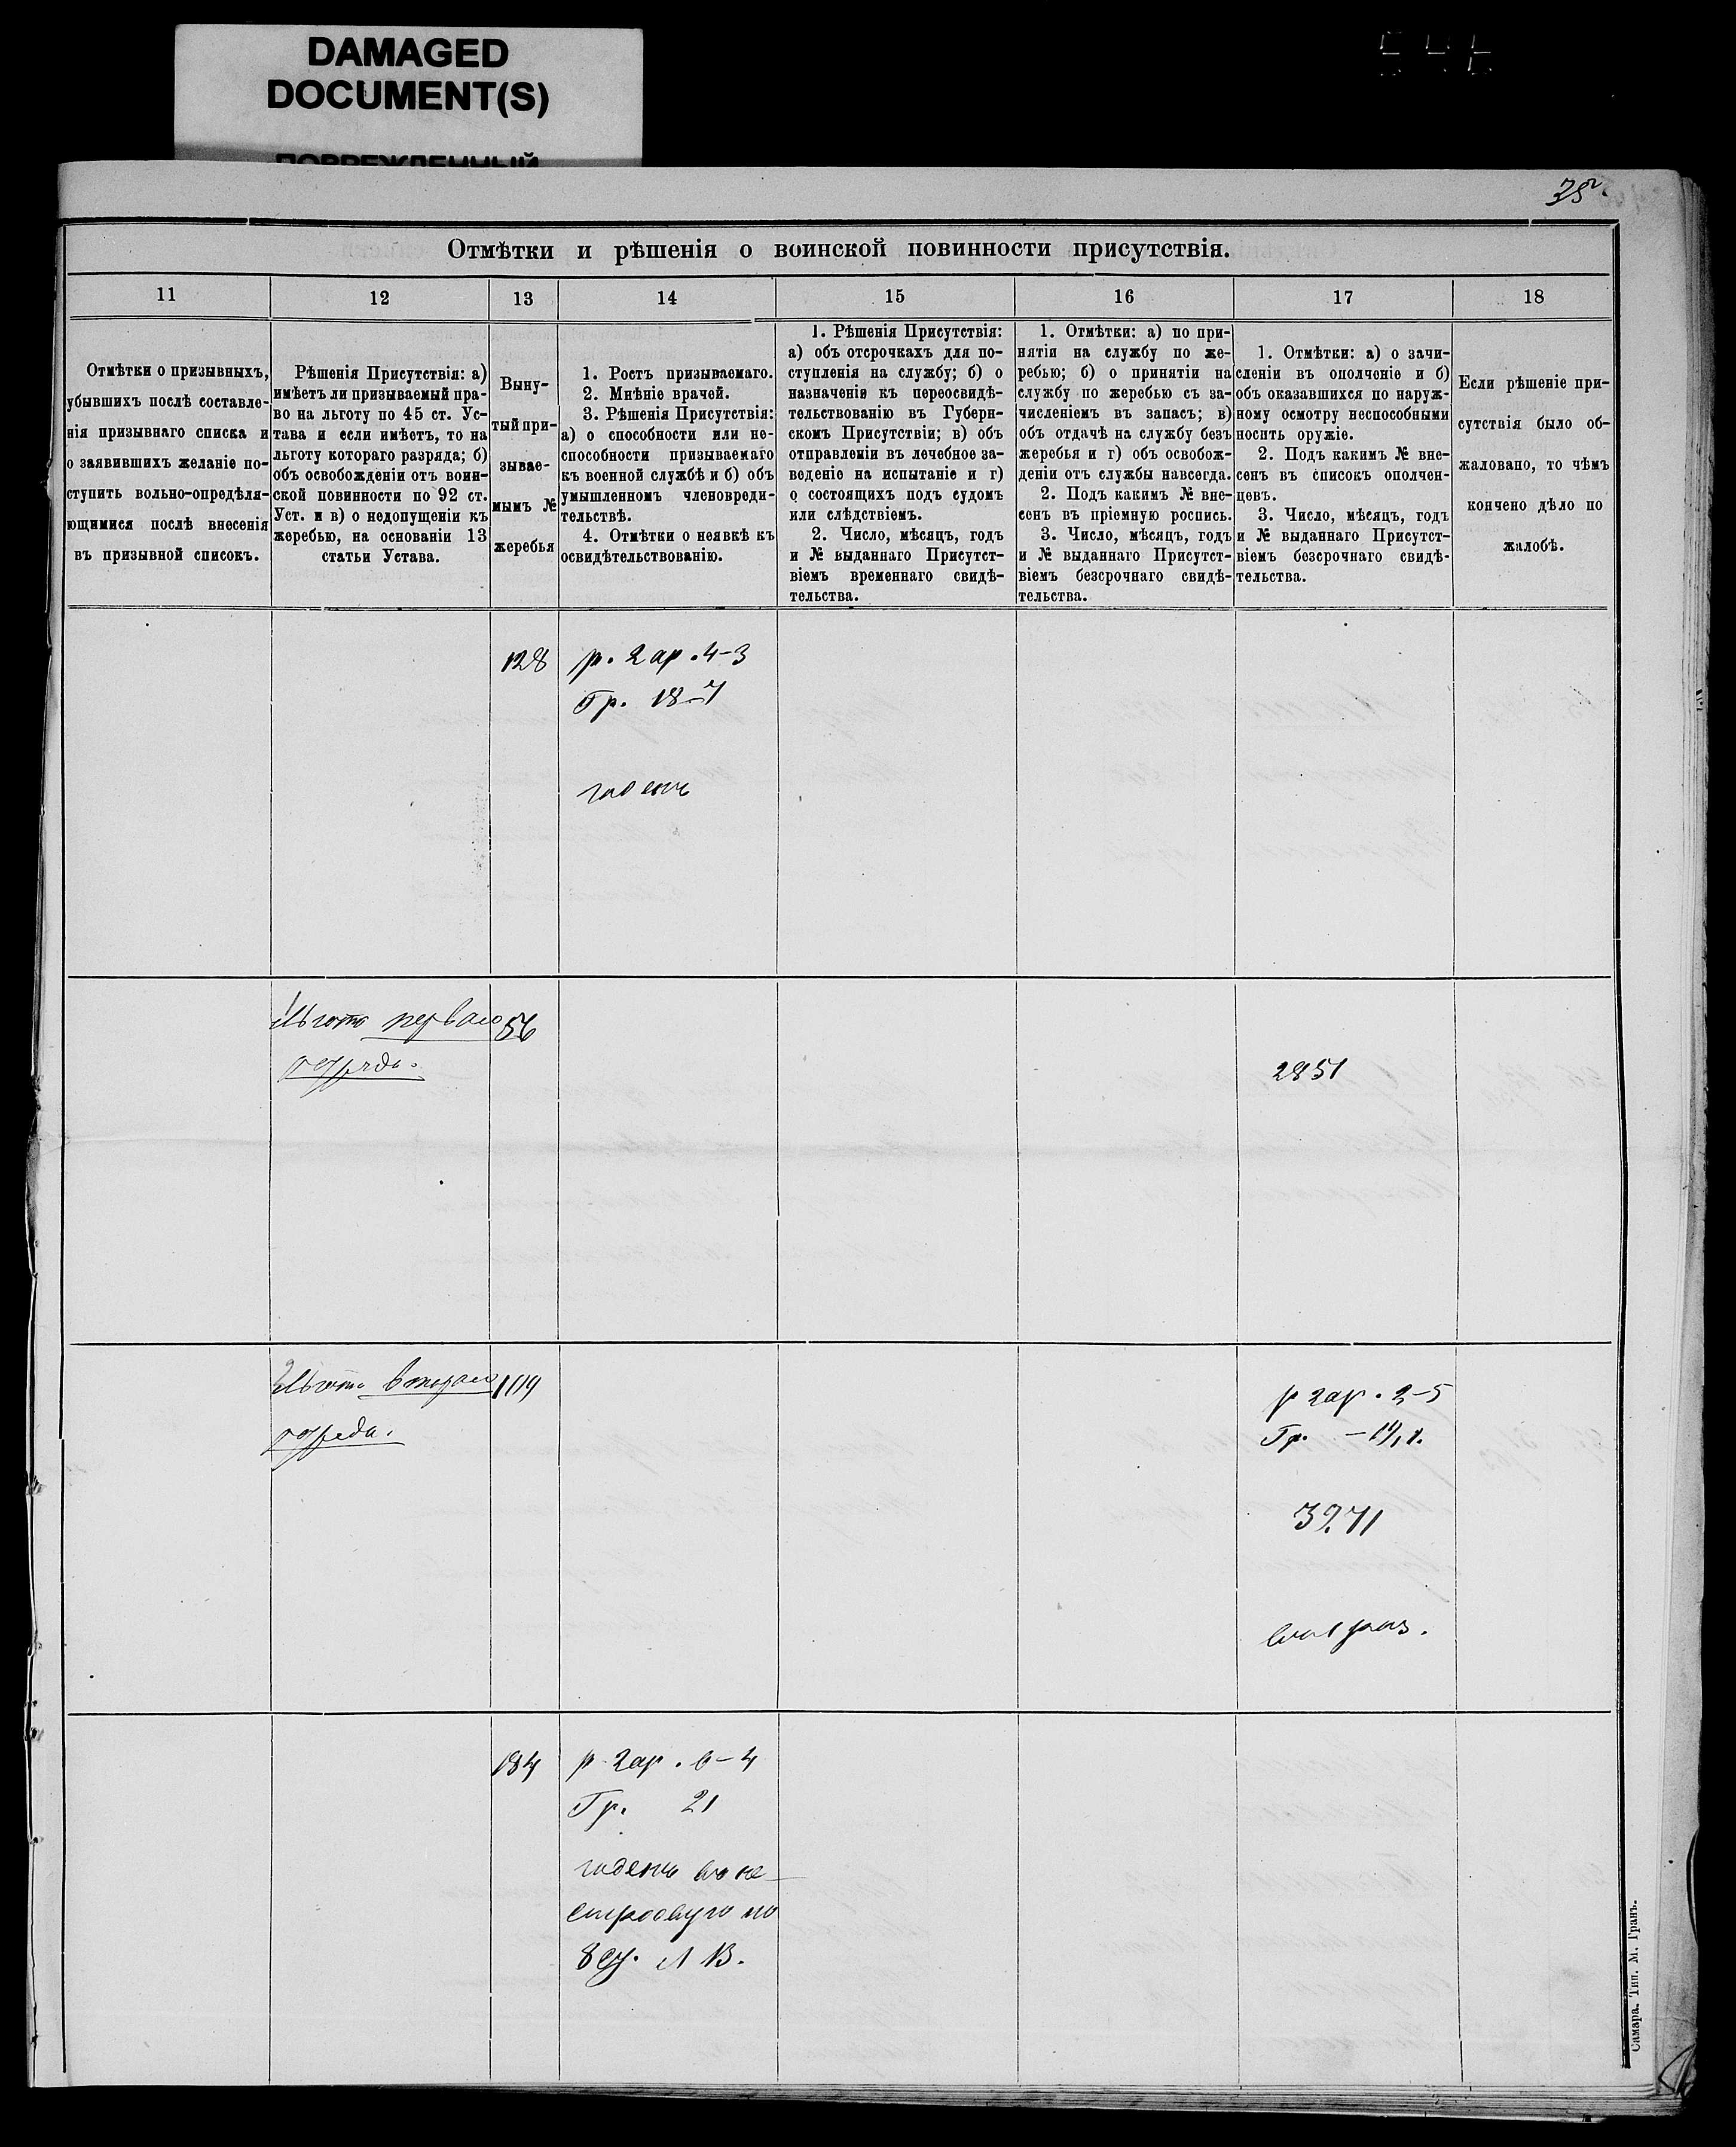 DAMAGED
DOCUMENT(S)
ПОВРЕЖДЕННЫЙ
Отмѣтки и рѣшенія о воинской повинности присутствія.
11
12
13
14
15
16
17
18
Отмѣтки о призывныхъ,
убывшихъ послѣ составле-
нія призывнаго списка и
о заявившихъ желаніе по-
ступить вольно-опредѣля-
ющимися послѣ внесенія
въ призывной списокъ.
Рѣшенія Присутствія: а)
имѣетъ ли призываемый пра-
во на льготу по 45 ст. Ус-
тава и если имѣетъ, то на
льготу котораго разряда; б)
объ освобожденіи отъ воин-
ской повинности по 92 ст.
Уст. и в) о недопущеніи къ
жеребью, на основаніи 13
статьи Устава.
Выну-
тый при-
зывае-
мымъ №
жеребья
1. Ростъ призываемаго.
2. Мнѣніе врачей.
3. Рѣшенія Присутствія:
а) о способности или не-
способности призываемаго
къ военной службѣ и б) объ
умышленномъ членовреди-
тельствѣ.
4. Отмѣтки о неявкѣ къ
освидѣтельствованію.
1. Рѣшенія Присутствія:
а) объ отсрочкахъ для по-
ступленія на службу; б) о
назначеніи къ переосвидѣ-
тельствованію въ Губерн-
скомъ Присутствіи; в) объ
отправленіи въ лечебное за-
веденіе на испытаніе и г)
о состоящихъ подъ судомъ
или слѣдствіемъ.
2. Число, мѣсяцъ, годъ
и № выданнаго Присутст-
віемъ временнаго свидѣ-
тельства.
1. Отмѣтки: а) по при-
нятіи на службу по же-
ребью; б) о принятіи на
службу по жеребью съ за-
численіемъ въ запасъ; в)
объ отдачѣ на службу безъ
жеребья и г) объ освобож-
деніи отъ службы навсегда.
2. Подъ какимъ № вне-
сенъ въ пріемную роспись.
3. Число, мѣсяцъ, годъ
и № выданнаго Присутст-
віемъ безсрочнаго свидѣ-
тельства.
1. Отмѣтки: а) о зачи-
сленіи въ ополченіе и б)
объ оказавшихся по наруж-
ному осмотру неспособными
носить оружіе.
2. Подъ какимъ № вне-
сенъ въ списокъ ополчен-
цевъ.
3. Число, мѣсяцъ, годъ
и № выданнаго Присутст-
віемъ безсрочнаго свидѣ-
тельства.
Если рѣшеніе при-
сутствія было об-
жаловано, то чѣмъ
кончено дѣло по
жалобѣ.
128
р. 2 ар. 4-3
Гр. 18
годенъ
Льгота перваго
разряда.
56
2851
Льгота втораго
разряда.
109
р 2 ар. 2-5
Гр.
3271
184
р 2 ар. 6-4
Гр. 21
годенъ въ не-
строевую по
Самара. Тип. М. Гранъ.